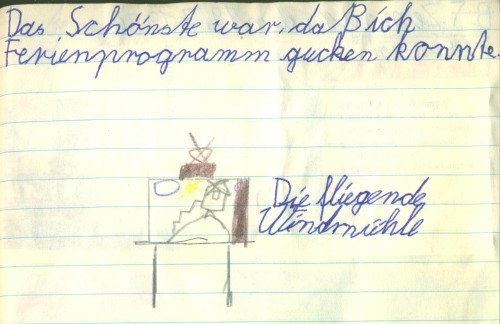 Das Schönste war, da Bich
Ferienprogramm gucken konnte.
Die fliegende
Windmühle